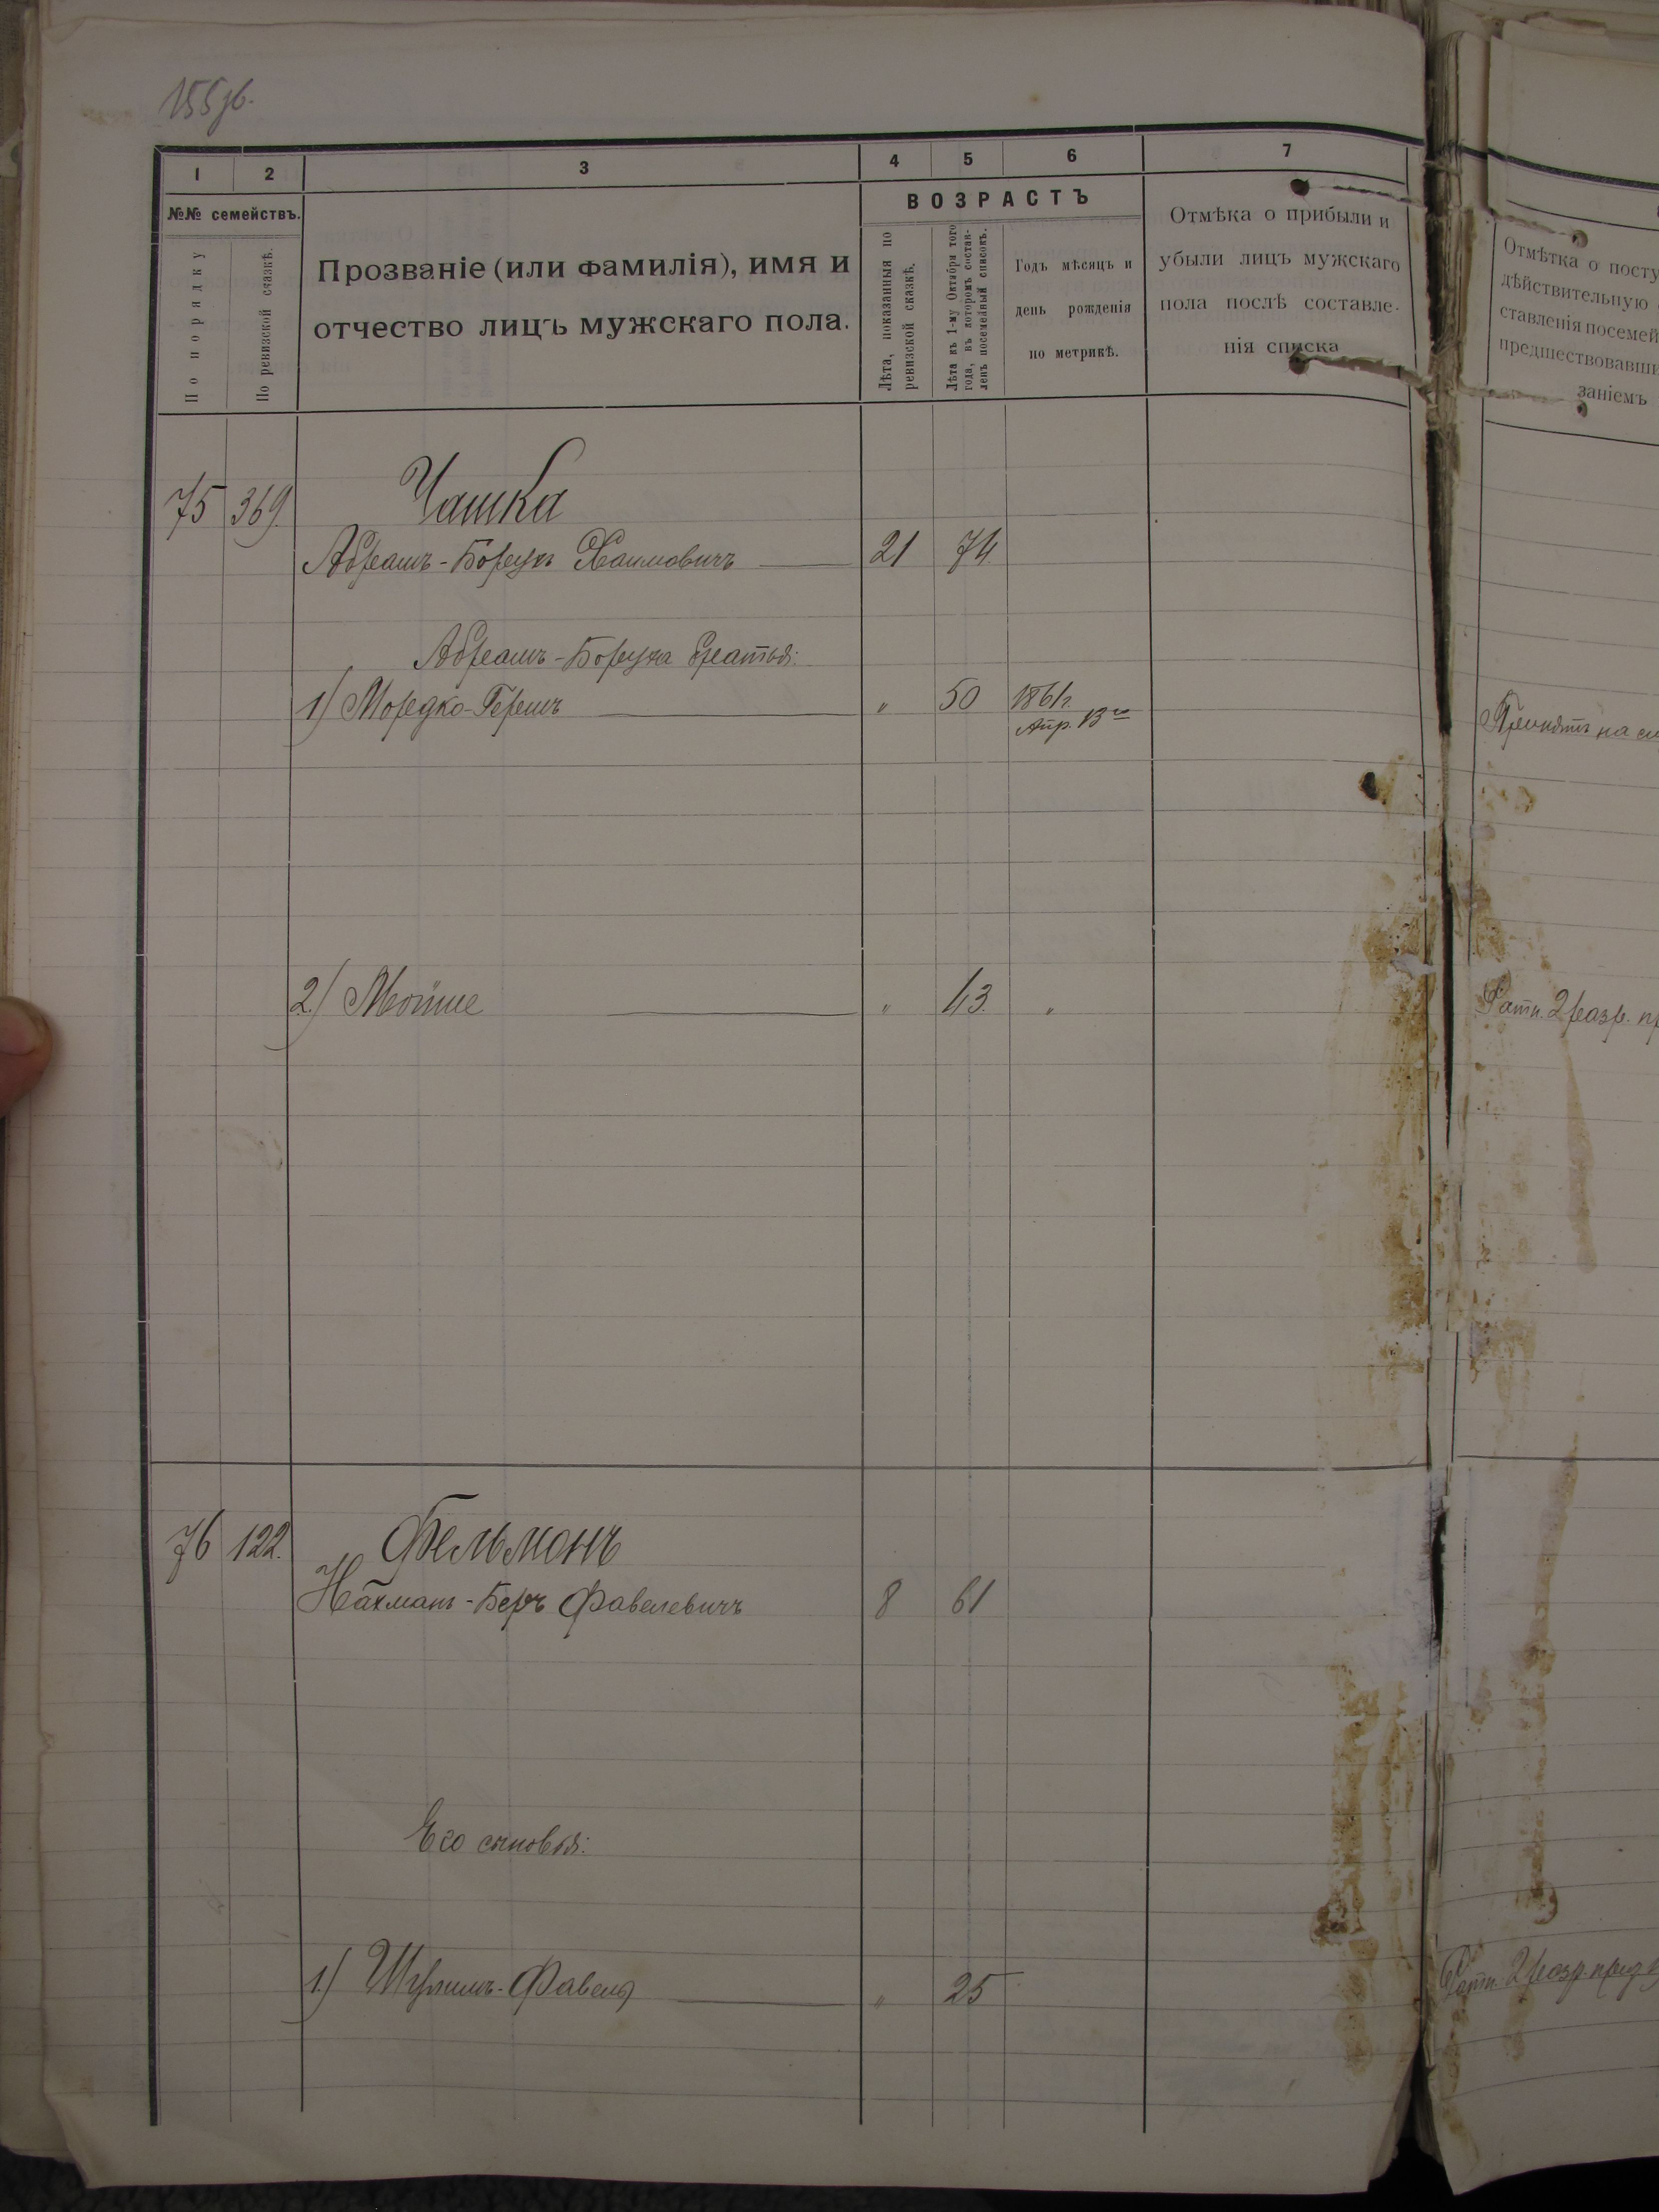 155об.
1 2 3 4 5 6 7
№№ семействъ.
По порядку
По ревизской сказкѣ.
Прозваніе (или фамилія), имя и
отчество лицъ мужскаго пола.
ВОЗРАСТЪ
Лѣта, показанныя по
ревизской сказкѣ.
Лѣта къ 1-му Октября того
года, въ которомъ состав-
ленъ посемейный списокъ.
Годъ мѣсяцъ и
день рожденія
по метрикѣ.
Отмѣка о прибыли и
убыли лицъ мужскаго
пола послѣ составле-
нія списка
Отмѣтка о посту
дѣйствительную
ставленія посемей
предшествовавши
заніемъ
75 369. Чашка
Абрамъ-Борухъ Хаимовичъ 21 74.
Абрамъ-Боруха братья:
1) Мордко-Гершъ „ 50 1861г.
Апр. 13го
Принятъ на сл
2.) Мойше „ 43. „ Ратн. 2 разр. пр
76 122. Фельманъ
Нахманъ-Беръ Фавелевичъ 8 61
Его сыновья:
1.) Шулимъ-Фавель „ 25 Ратн. 2 разр. пред